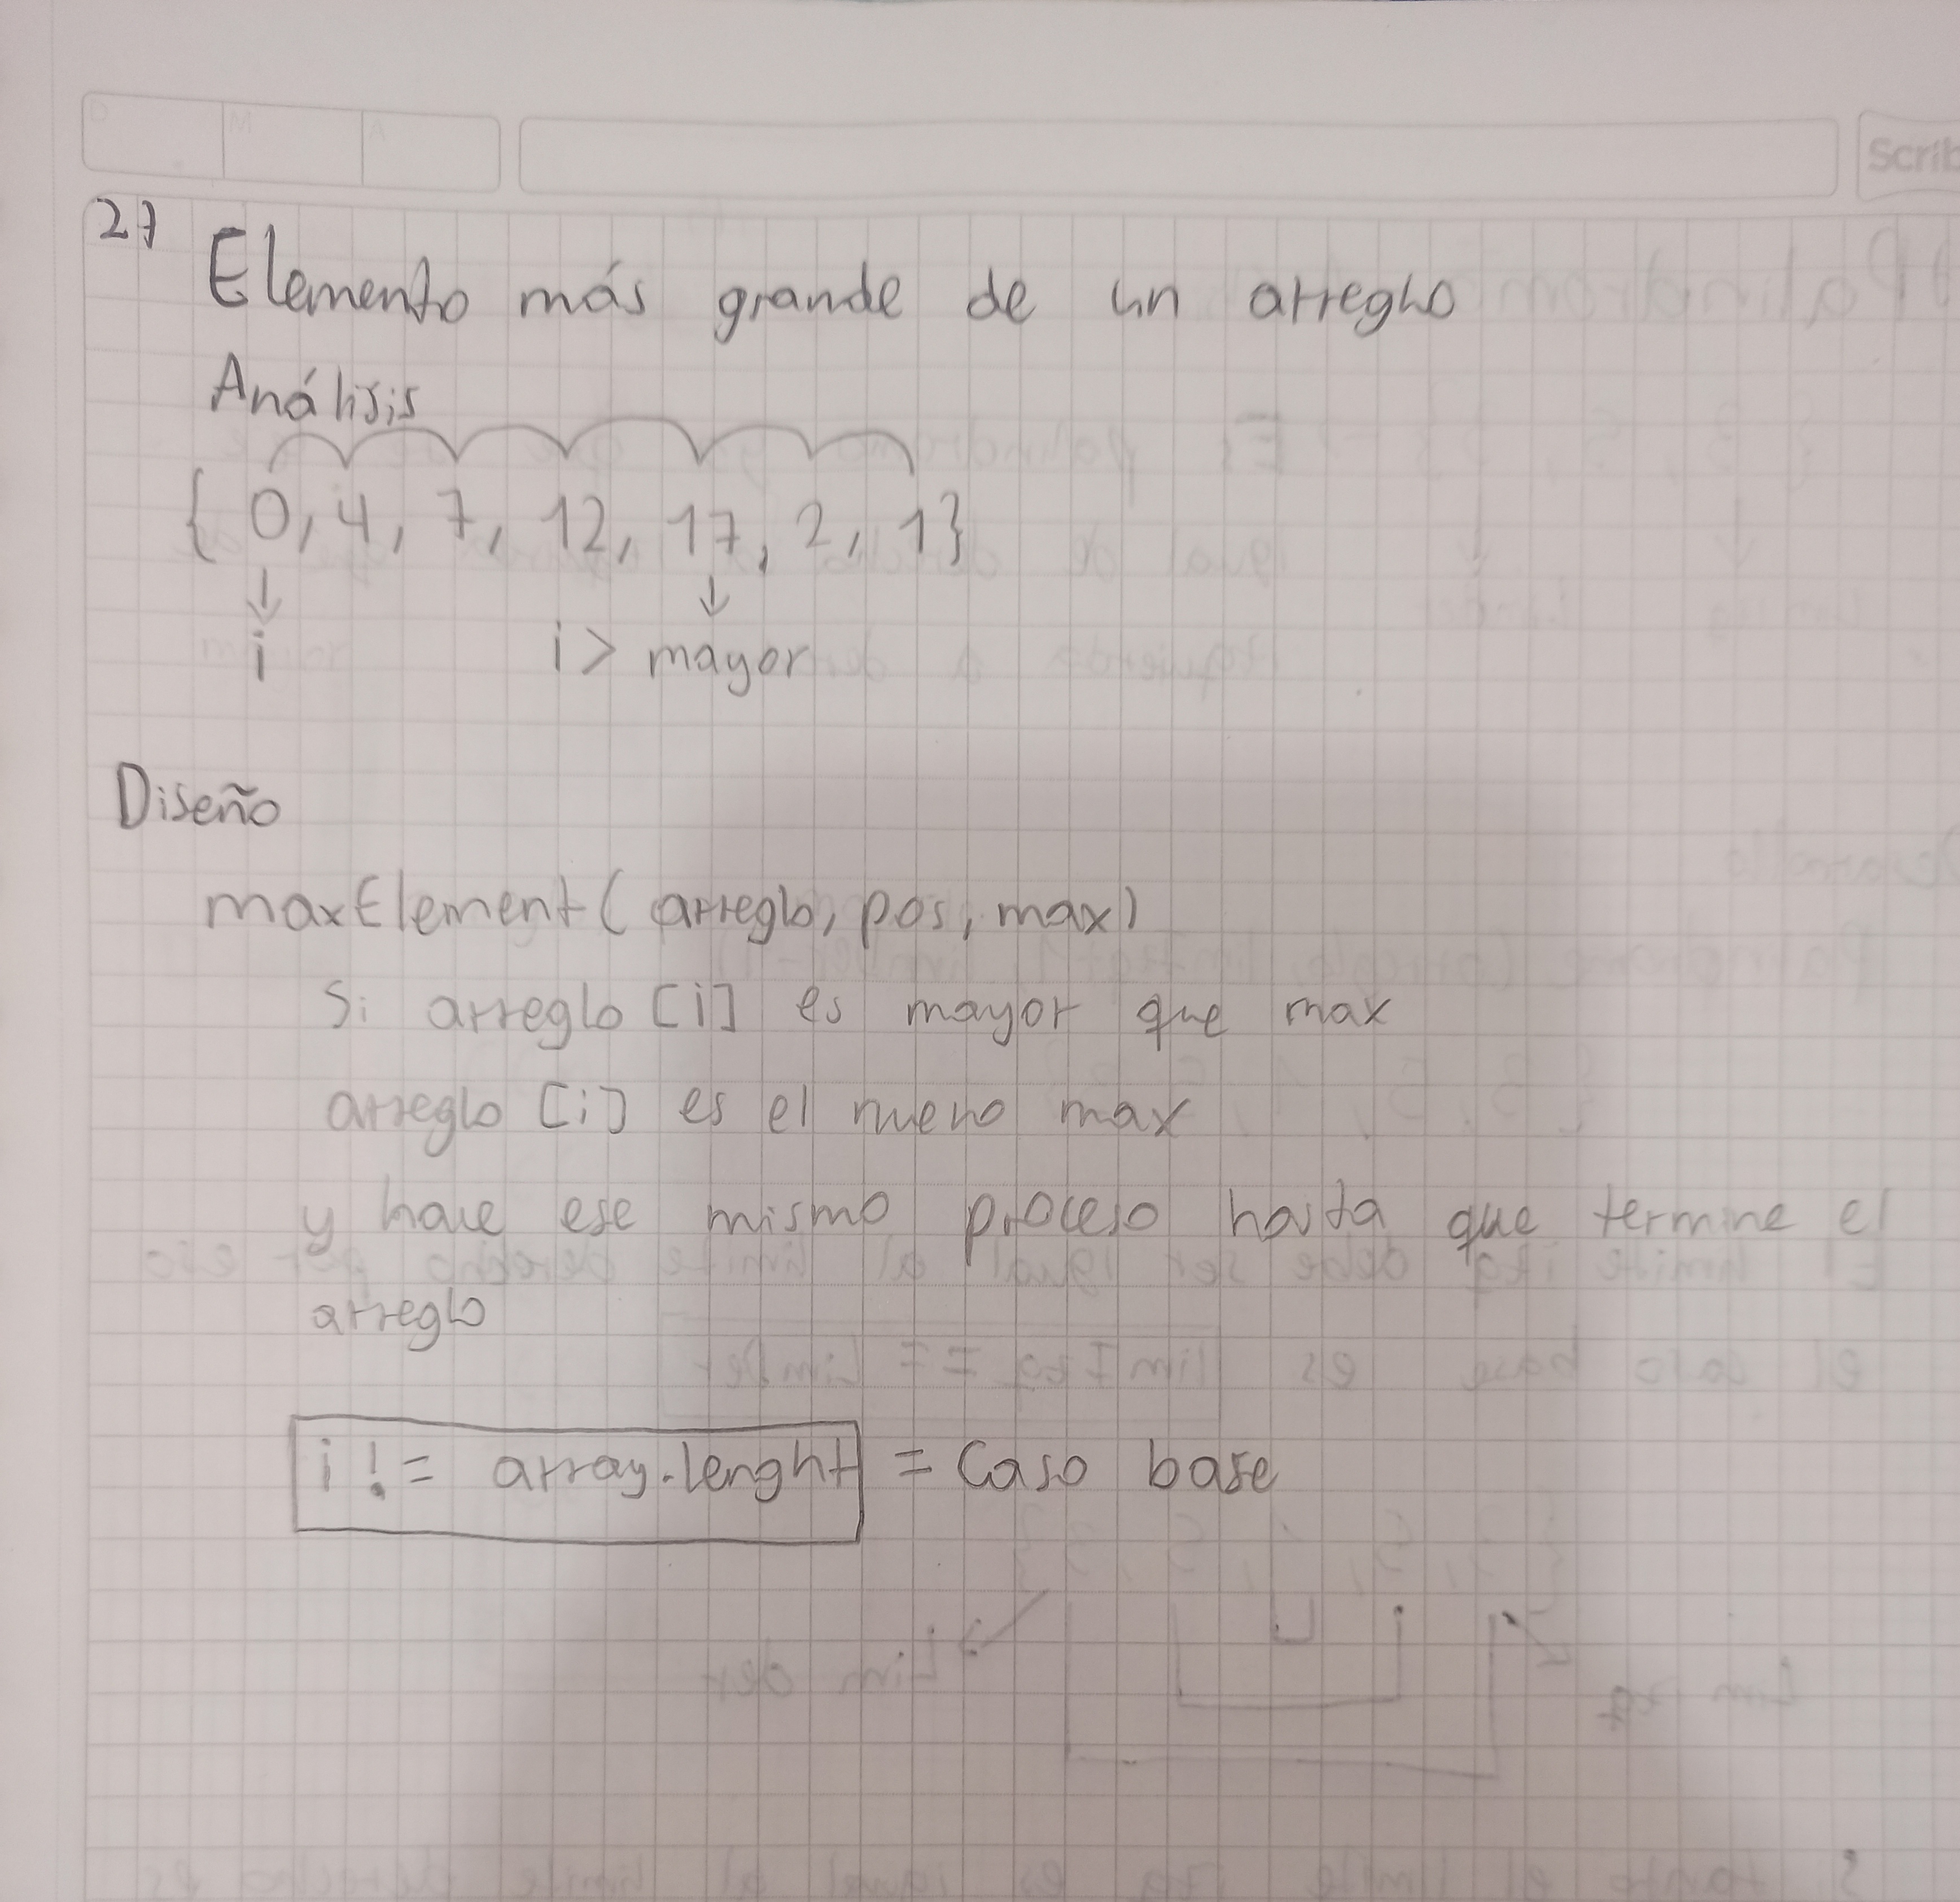 D M A
Scrib
27
Elemento más grande de un arreglo
Análisis
{ 0, 4, 7, 12, 17, 2, 1}
i i > mayor
Diseño
maxElement( arreglo, pos, max)
Si arreglo [i] es mayor que max
arreglo [i] es el nuevo max
y hace ese mismo proceso hasta que termine el
arreglo
i != array.lenght = Caso base